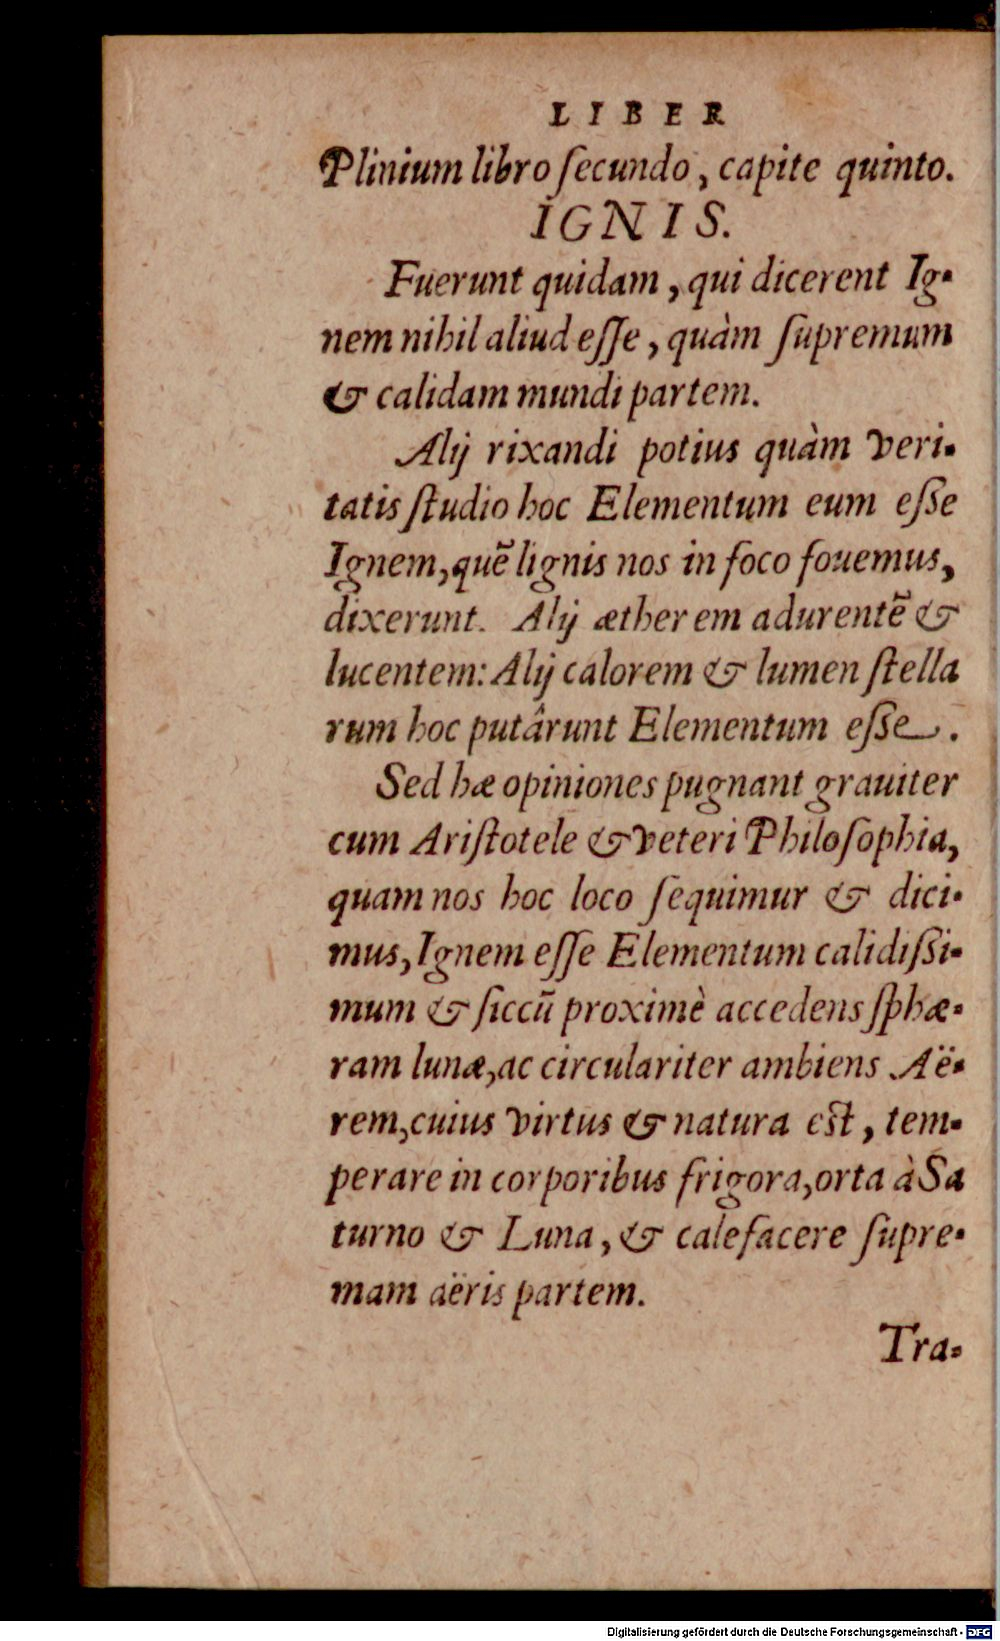 LIBER
Plinium libro ſecundo, capite quinto.
IGNIS.
Fuerunt quidam, qui dicerent Ig-
nem nihil aliud eſſe, quàm ſupremum
& calidam mundi partem.
Alij rixandi potius quàm veri-
tatis ſtudio hoc Elementum eum eſſe
Ignem, quē lignis nos in foco fouemus,
dixerunt. Alij ætherem adurentē &
lucentem: Alij calorem & lumen ſtella
rum hoc putârunt Elementum eſſe.
Sed hæ opiniones pugnant grauiter
cum Ariſtotele & veteri Philoſophia,
quam nos hoc loco ſequimur & dici-
mus, Ignem eſſe Elementum calidiſſi-
mum & ſiccū proximè accedens ſphæ-
ram lunæ, ac circulariter ambiens Aë-
rem, cuius virtus & natura eſt, tem-
perare in corporibus frigora, orta à Sa
turno & Luna, & calefacere ſupre-
mam aëris partem.
Tra-
Digitalisierung gefördert durch die Deutsche Forschungsgemeinschaft - DFG